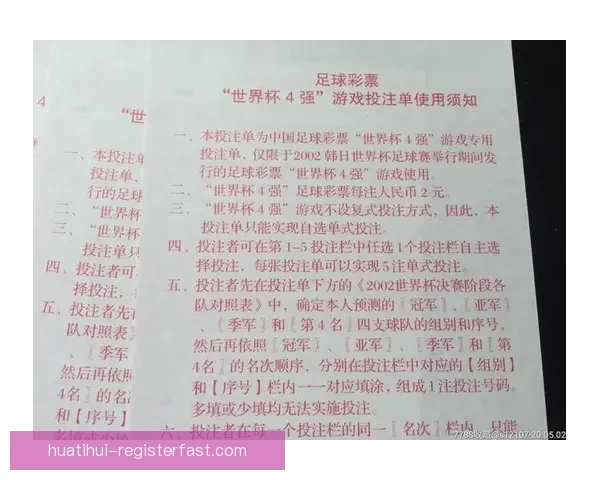 足球彩票
“世界杯 4 强”游戏投注单使用须知
一、本投注单为中国足球彩票“世界杯 4 强”游戏专用
投注单，仅限于2002 韩日世界杯足球赛举行期间发
行的足球彩票“世界杯 4 强”游戏使用。
二、“世界杯 4 强”足球彩票每注人民币 2 元。
三、“世界杯 4 强”游戏不设复式投注方式，因此，本
投注单只能实现自选单式投注。
四、投注者可在第 1-5 投注栏中任选 1个投注栏自主选
择投注，每张投注单可以实现 5 注单式投注。
五、投注者先在投注单下方的《2002世界杯决赛阶段各
队对照表》中，确定本人预测的〖冠军〗、〖亚军〗
、〖季军〗和〖第 4 名〗四支球队的组别和序号，
然后再依照〖冠军〗、〖亚军〗、〖季军〗和〖第
4名〗的名次顺序，分别在投注栏中对应的【组别】
和【序号】栏内一一对应填涂，组成1注投注号码。
多填或少填均无法实施投注。
六、投注者在每一个投注栏的同一〖名次〗栏内，只能
4
“世
一、本投注单
投注单，
行的足球
二、“世界杯
三、“世界杯
投注单只
四、投注者可
择投注，
五、投注者先在
队对照表》
、〖季军
然后再依照
4名〗的名
和【序号】
多填或少填
7788收藏@s12107 20.05.02
huatihui-registerfast.com